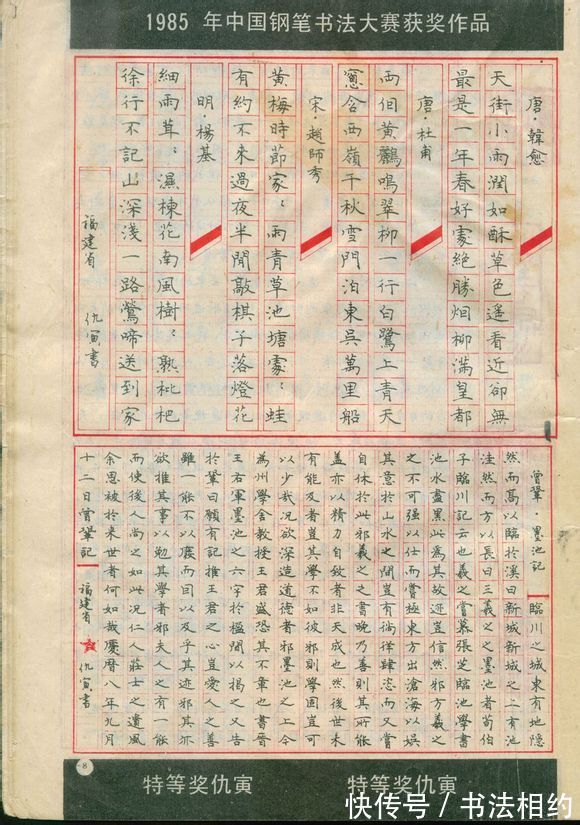 1985 年中国钢笔书法大赛获奖作品
唐·韓愈
天街小雨潤如酥草色遥看近卻無
最是一年春好處絕勝烟柳滿皇都
唐·杜甫
两個黃鸝鳴翠柳一行白鷺上青天
窻含西嶺千秋雪門泊東吳萬里船
宋·趙師秀
黃梅時節家:雨青草池塘處:蛙
有約不來過夜半閒敲棋子落燈花
明·楊基
細雨茸:濕楝花南風樹:熟枇杷
徐行不記山深淺一路鶯啼送到家
福建省 仇寅書
曾鞏·墨池記 臨川之城東有地隱
然而高以臨於溪曰新城新城之上有池
洼然而方以長曰王羲之之墨池者荀伯
子臨川記云也羲之嘗慕張芝臨池學書
池水盡黑此為其故迹豈信然邪方羲之
之不可强以仕而嘗極東方出滄海以娱
其意於山水之間豈有徜徉肆恣而又嘗
自休於此邪羲之之書晚乃善則其所能
蓋亦以精力自致者非天成也然後世未
有能及者豈其學不如彼邪則學固豈可
以少哉况欲深造道德者邪墨池之上今
為州學舍教授王君盛恐其不章也書晉
王右軍墨池之六字於楹間以揭之又告
於鞏曰願有記推王君之心豈愛人之善
雖一能不以廢而因以及乎其迹邪其亦
欲推其事以勉其學者邪夫人之有一能
而使後人尚之如此况仁人莊士之遺風
余思被於來世者何如哉慶曆八年九月
十二日曾鞏記 福建省 仇寅書
·8·
特等奖仇寅 特等奖仇寅
快传号 / 书法相约